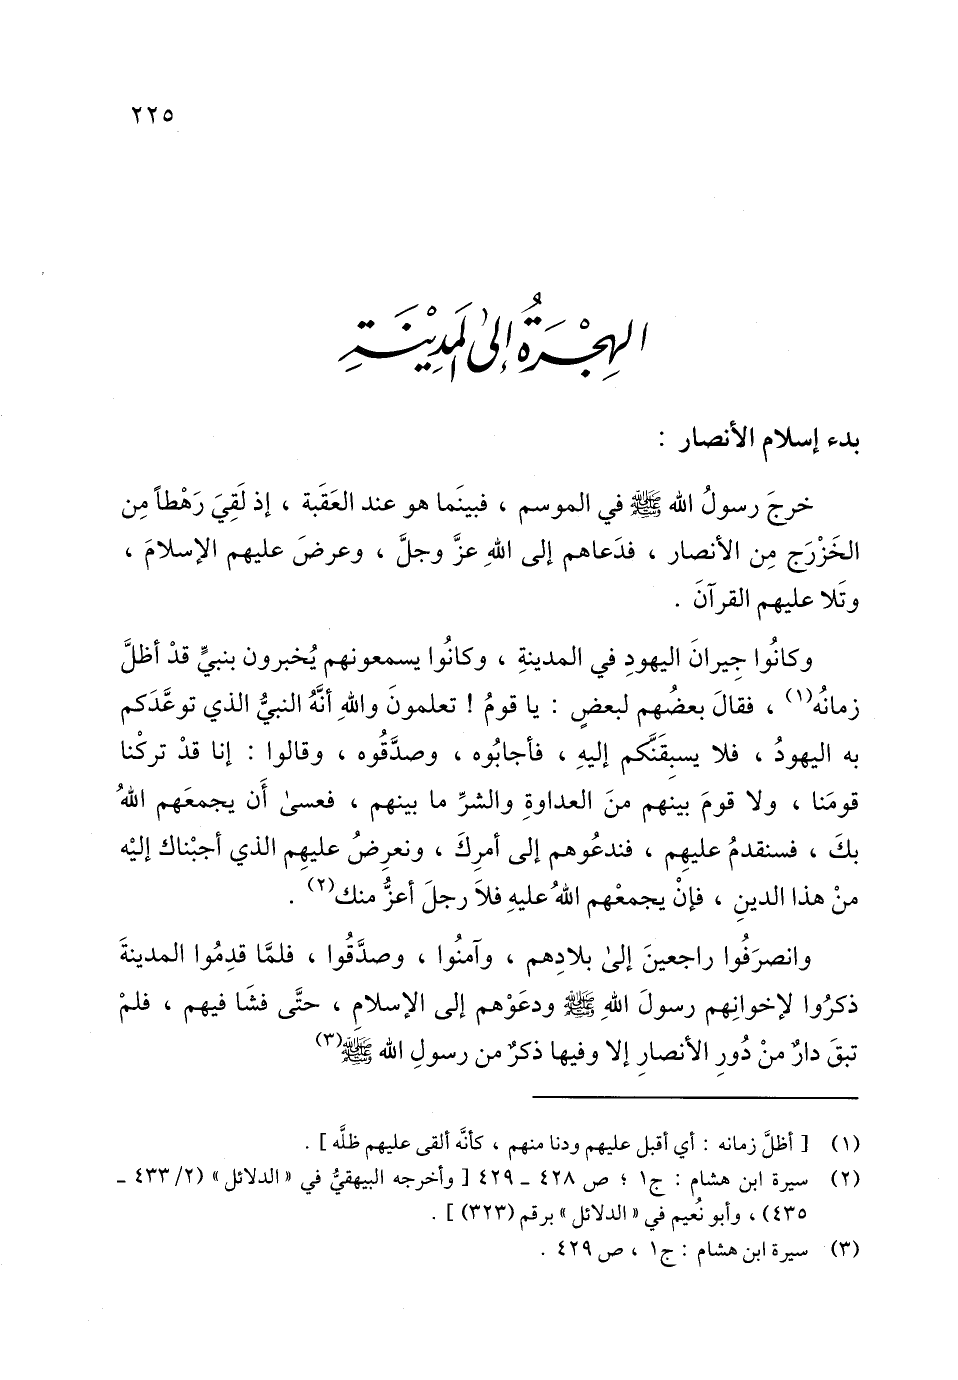 ٢٢٥
الهِجْرَةُ إلىٰ المَدِيْنَةِ
بدء إسلام الأنصار :
خرجَ رسولُ الله ﷺ في الموسم ، فبينَما هو عند العَقَبة ، إذ لَقِيَ رَهْطاً مِن
الخَزْرَج مِن الأنصار ، فدَعاهم إلى اللهِ عزَّ وجلَّ ، وعرضَ عليهم الإسلامَ ،
وتَلا عليهم القرآنَ .
وكانُوا جِيرانَ اليهودِ في المدينةِ ، وكانُوا يسمعونهم يُخبرون بنبيٍّ قدْ أظلَّ
زمانُه(١) ، فقالَ بعضُهم لبعضٍ : يا قومُ ! تعلمونَ واللهِ أنَّهُ النبيُّ الذي توعَّدَكم
به اليهودُ ، فلا يسبِقَنَّكم إليهِ ، فأجابُوه ، وصدَّقُوه ، وقالوا : إنا قدْ تركْنا
قومَنا ، ولا قومَ بينهم منَ العداوةِ والشرِّ ما بينهم ، فعسىٰ أَن يجمعَهم اللهُ
بكَ ، فسنقدمُ عليهِم ، فندعُوهم إلى أمرِكَ ، ونعرِضُ عليهِم الذي أجبْناك إليْه
منْ هذا الدينِ ، فإنْ يجمعْهم اللهُ عليهِ فلاَ رجلَ أعزُّ منك(٢) .
وانصرَفُوا راجعينَ إلىٰ بلادِهم ، وآمنُوا ، وصدَّقُوا ، فلمَّا قدِمُوا المدينةَ
ذكرُوا لإخوانِهم رسولَ اللهِ ﷺ ودعَوْهم إلى الإسلامِ ، حتَّى فشَا فيهم ، فلمْ
تبقَ دارٌ منْ دُورِ الأنصارِ إلا وفيها ذكرٌ من رسولِ الله ﷺ(٣)
(١) [ أظلَّ زمانه : أي أقبل عليهم ودنا منهم ، كأنَّه ألقى عليهم ظلَّه ] .
(٢) سيرة ابن هشام : ج١ ؛ ص ٤٢٨ ـ ٤٢٩ [ وأخرجه البيهقيُّ في « الدلائل » (٢/ ٤٣٣ ـ
٤٣٥) ، وأبو نُعيم في « الدلائل » برقم (٣٢٣) ] .
(٣) سيرة ابن هشام : ج١ ، ص ٤٢٩ .